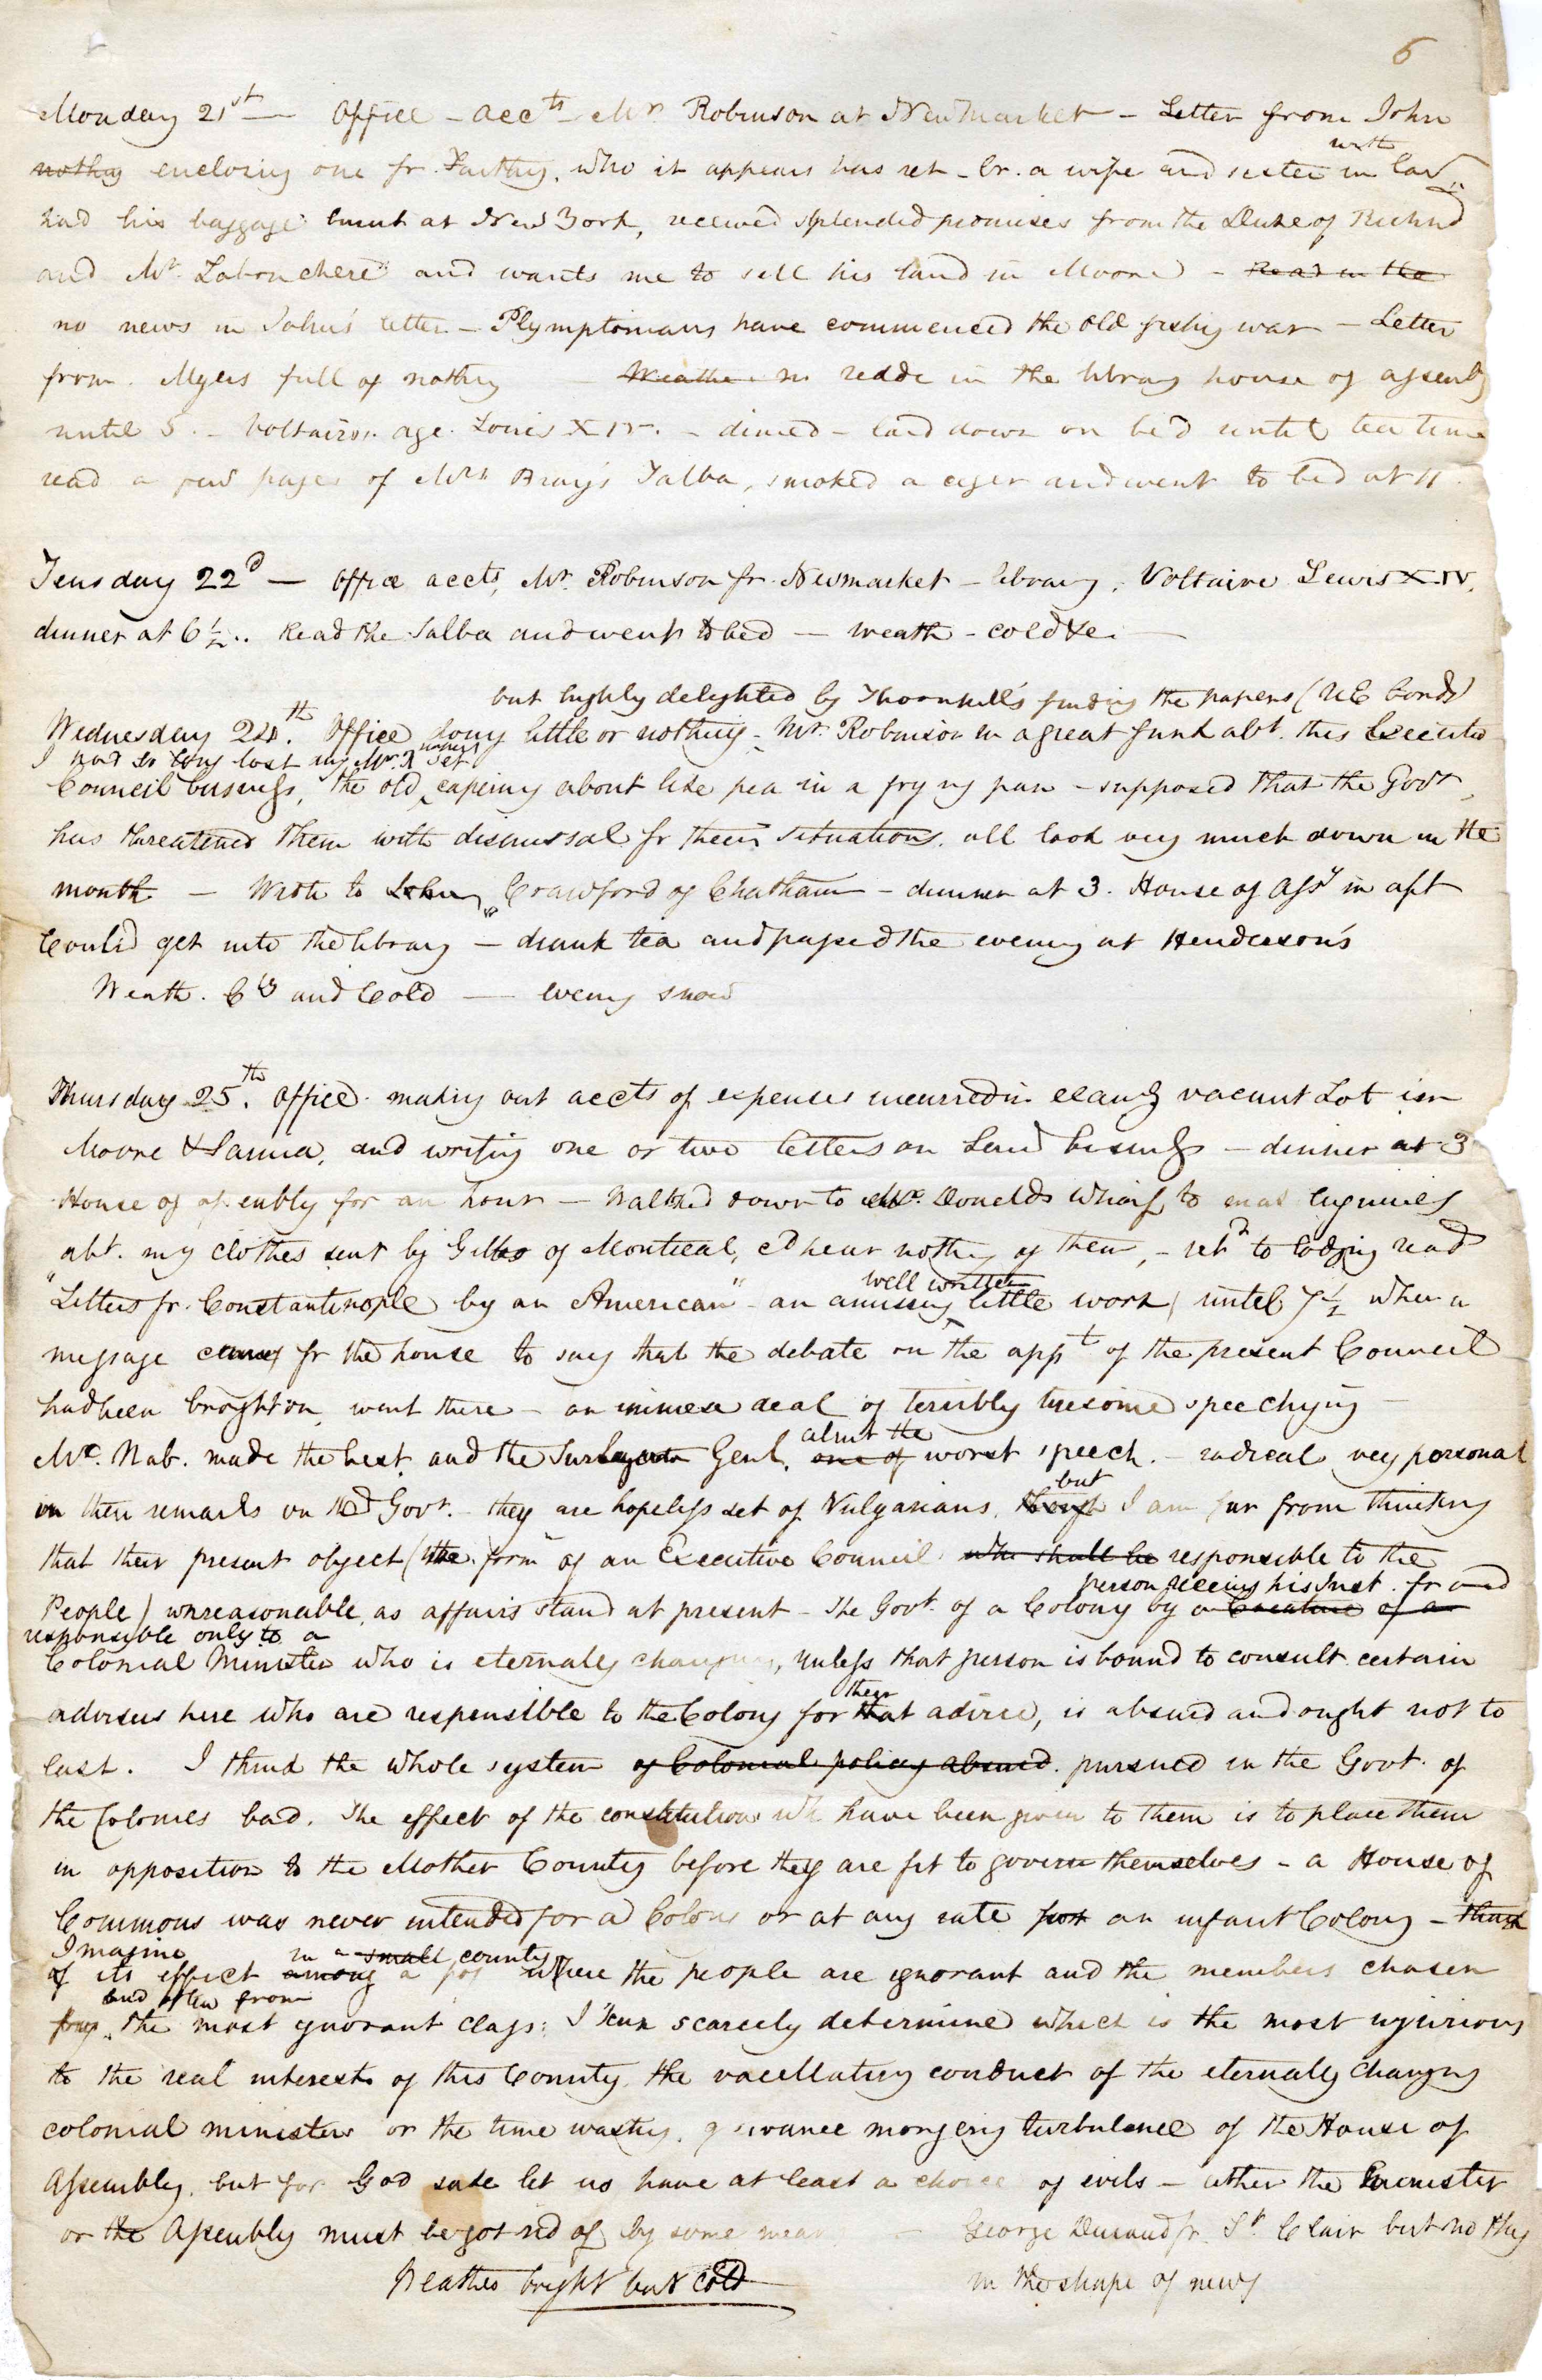 6
Monday 21st — Office – accts – Mr Robinson at Newmarket – Letter from John
nothg enclosing one fr. who it appears has ret – br. a wife and sister in law with
had his baggage burnt at New York, received splendid promises from the Duke of Richmd
and Mr. Labouchere and wants me to sell his land in Moore – Read in the
no news in John's letter – Plymptonians have commenced the old fishg war – Letter
from Myers full of nothing — Weather redde in the library house of assembly
until 5 – Voltaires age Louis XIV. – dined – laid down on bed until tea time
read a few pages of Mrs Bray's Talba, smoked a cigar and went to bed at 11
Teusday 22d — Office accts, Mr. Robinson fr. Newmarket – library, Voltaire Lewis XIV.
dinner at 6½.. Read the Talba and went to bed — weath – cold &c. —
but highly delighted by Thornhill's finding the papers (UE bonds)
Wednesday 24.th Office doing little or nothing – Mr. Robinson in a great funk abt. this Executive
I had so long lost
Council business, the old set capering about like pea in a frying pan – supposed that the Govr
has threatened them with dismissal fr their situations. all look very much down in the
mouth — Wrote to John Crawford of Chatham – dinner at 3. House of Assy in aft
Could get into the library — drank tea and passed the evening at Henderson's
Weath. Cly and Cold — evening snow
Thursday 25.th Office making out accts of expenses incurred in examg vacant Lot in
Moore & Sarnia, and writing one or two letters on Land business – dinner at 3
House of assembly for an hour — Walked down to McDonelds Wharf to make enquiries
abt. my clothes sent by Gibb of Montreal, cd hear nothing of them, – retd to lodging read
"Letters fr. Constantinople by an American" – an amusing well written little work, until 7½ when a
message came fr the house to say that the debate on the appt of the present Council
had been broght on, went there – an immense deal of terribly tiresome speechying –
Mc. Nab. made the best and the Surveyor Genl. one of about the worst speech. – radical very personal
in their remarks on the Govr. – they are hopeless set of Vulgarians, though but I am far from thinking
that their present object (the formn of an Executive Council who shall be responsible to the
People) unreasonable, as affairs stand at present – The Govt. of a Colony by a Creature of a person receiving his Inst. fr and
responsible only to a
Colonial Minister who is eternally changing, unless that person is bound to consult certain
advisers here who are responsible to the Colony for that their advice, is absurd and ought not to
last. I think the whole system of Colonial policy absurd pursued in the Govt. of
the Colonies bad. The effect of the constitutions wh have been given to them is to place them
in opposition to the Mother Country before they are fit to govern themselves – a House of
Commons was never intended for a Colony or at any rate for an infant Colony – think
Imagine in a small country
of its effect among a where the people are ignorant and the members chosen
and often from
from the most ignorant class: I can scarcely determine which is the most injurious
to the real interests of this Country the vacellating conduct of the eternally changing
colonial minister or the time wasting, grievance mongering turbulence of the House of
Assembly, but for God sake let us have at least a choice of evils – either the minister
or the Assembly must be got rid of by some means — George Durand fr. St Clair but nothg
in the shape of news
Weather bright but cold